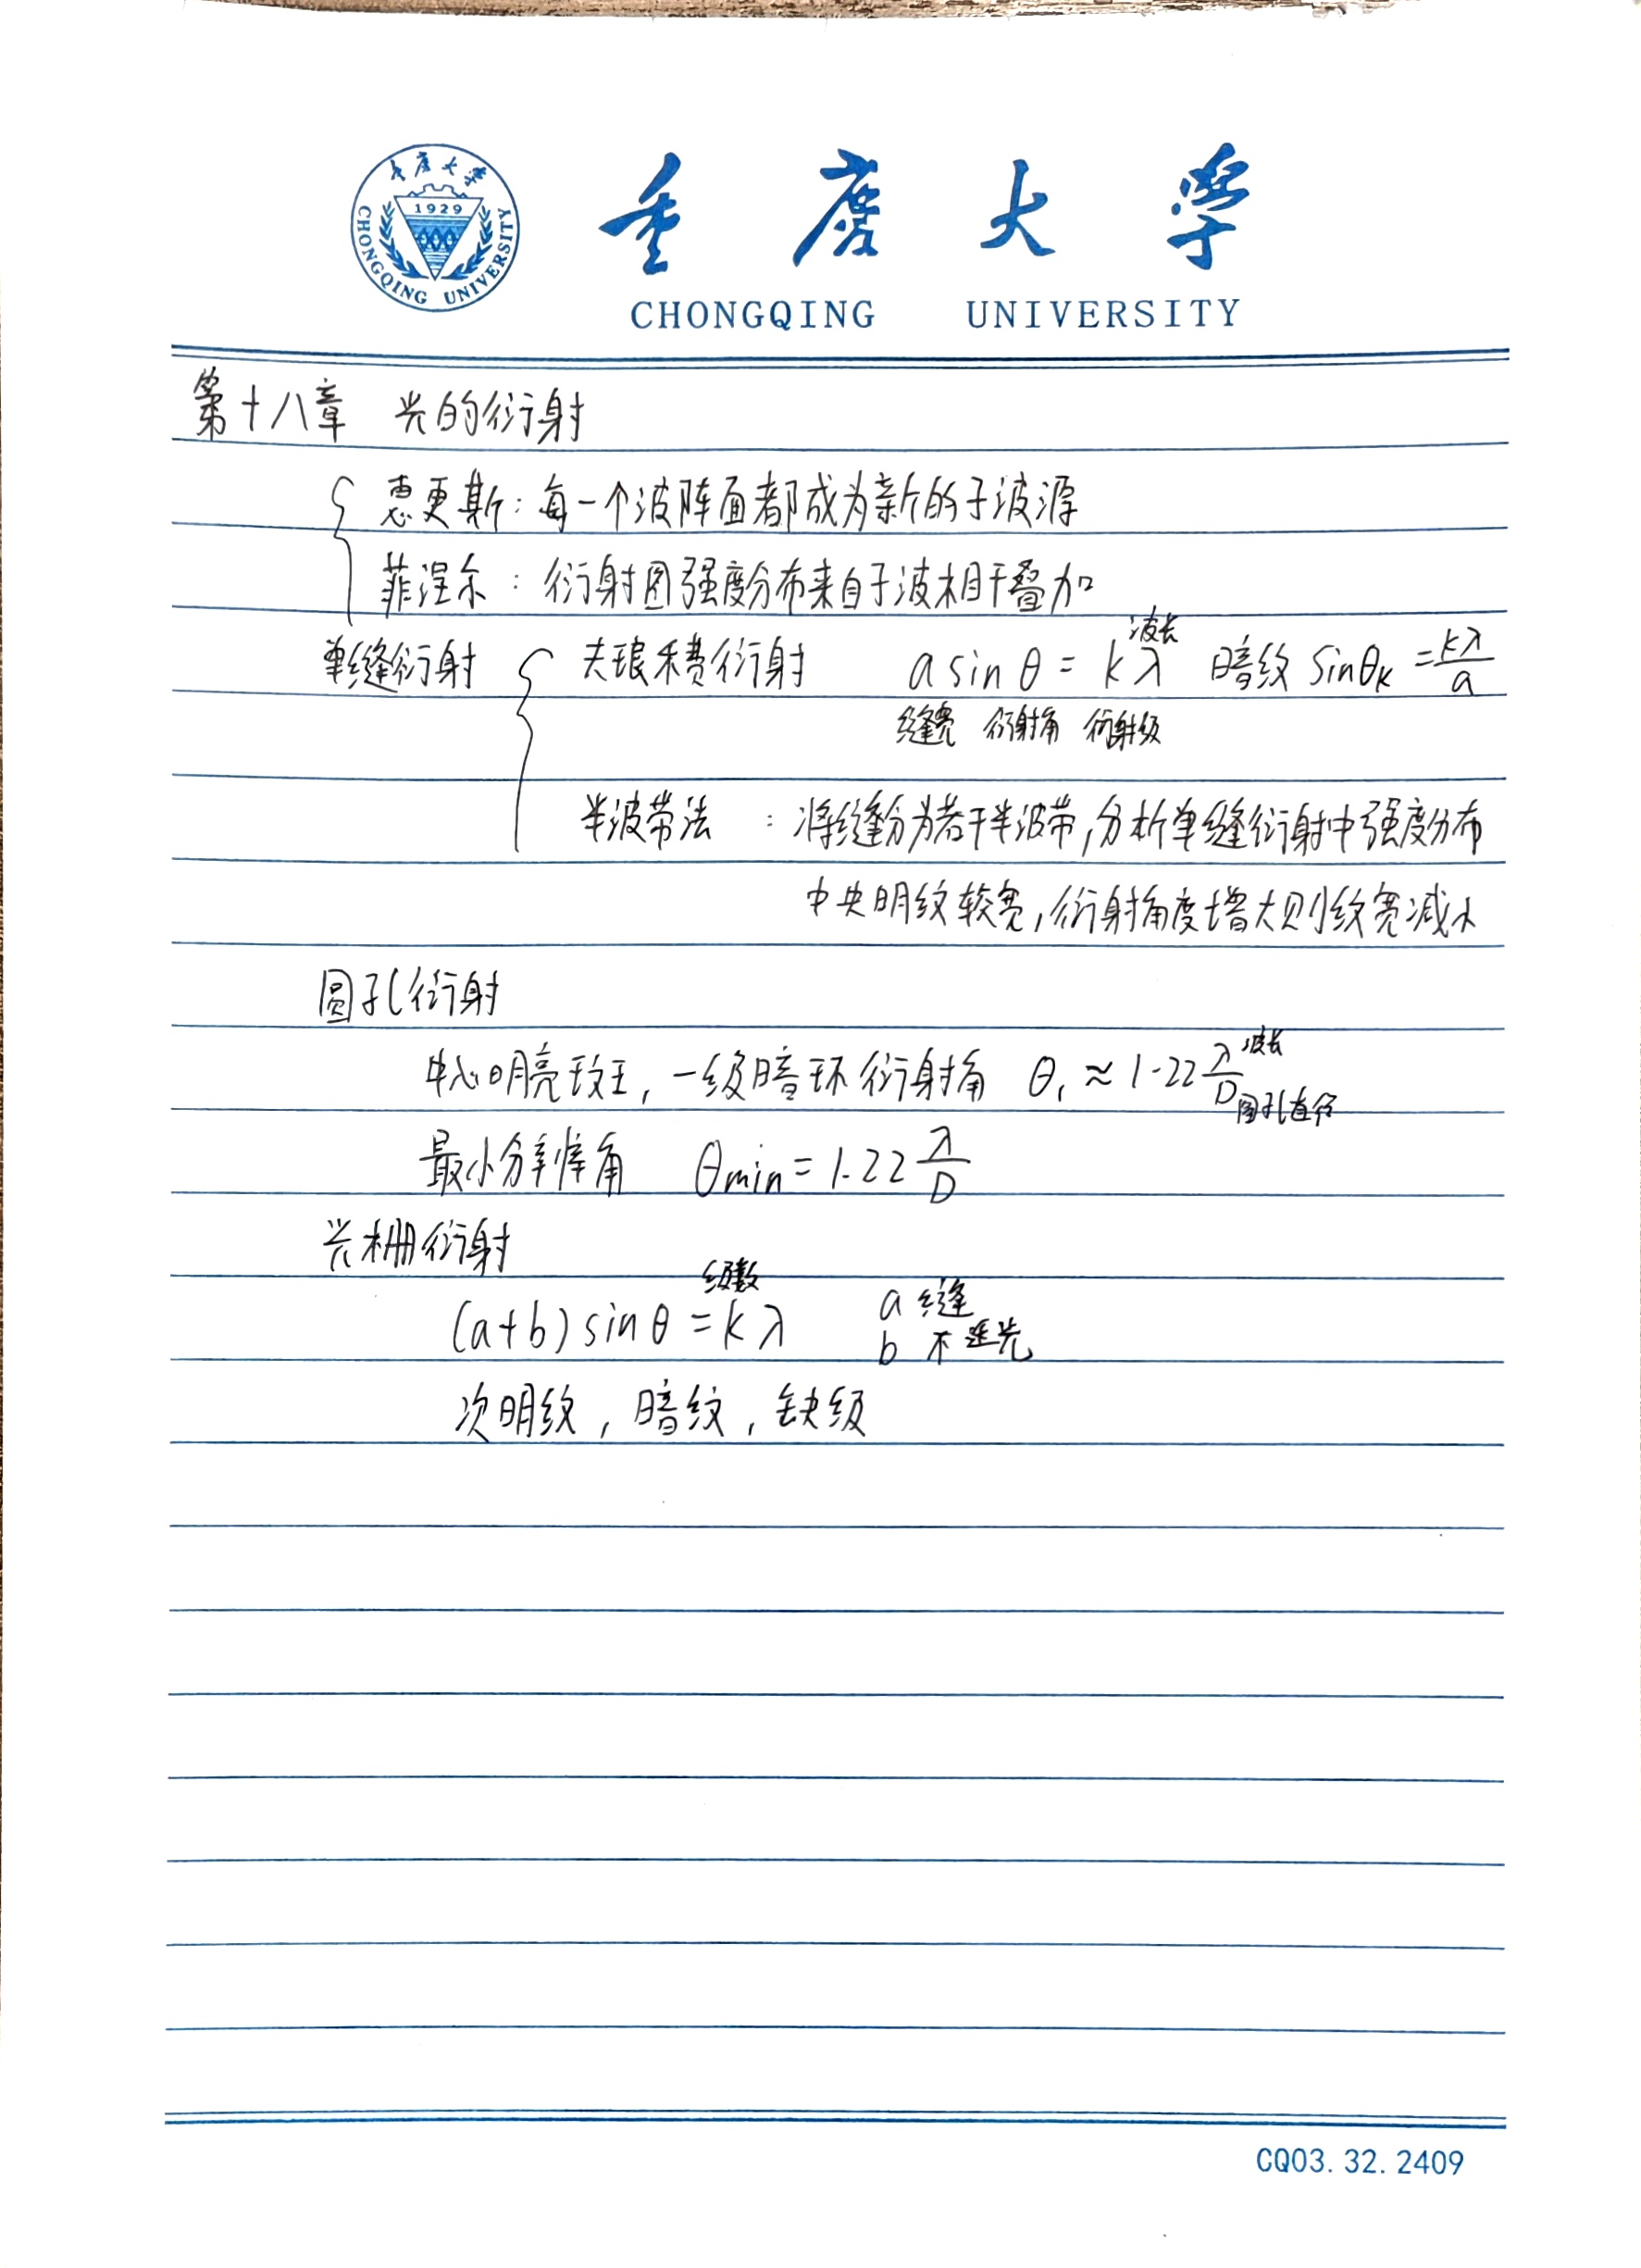 重庆大学
1929
CHONGQING UNIVERSITY
重庆大学
CHONGQING UNIVERSITY
第十八章 光的衍射
惠更斯：每一个波阵面都成为新的子波源
菲涅尔：衍射图强度分布来自子波相干叠加
波长
单缝衍射 夫琅禾费衍射 a sin θ = kλ 暗纹 sinθk = kλ/a
缝宽 衍射角 衍射级
半波带法：将缝分为若干半波带,分析单缝衍射中强度分布
中央明纹较宽,衍射角度增大则纹宽减小
圆孔衍射
中心明亮斑，一级暗环衍射角 θ₁ ≈ 1.22 λ/D 波长 圆孔直径
最小分辨角 θmin = 1.22 λ/D
光栅衍射
级数
(a+b) sin θ = kλ a 缝
b 不透光
次明纹，暗纹，缺级
CQ03.32.2409